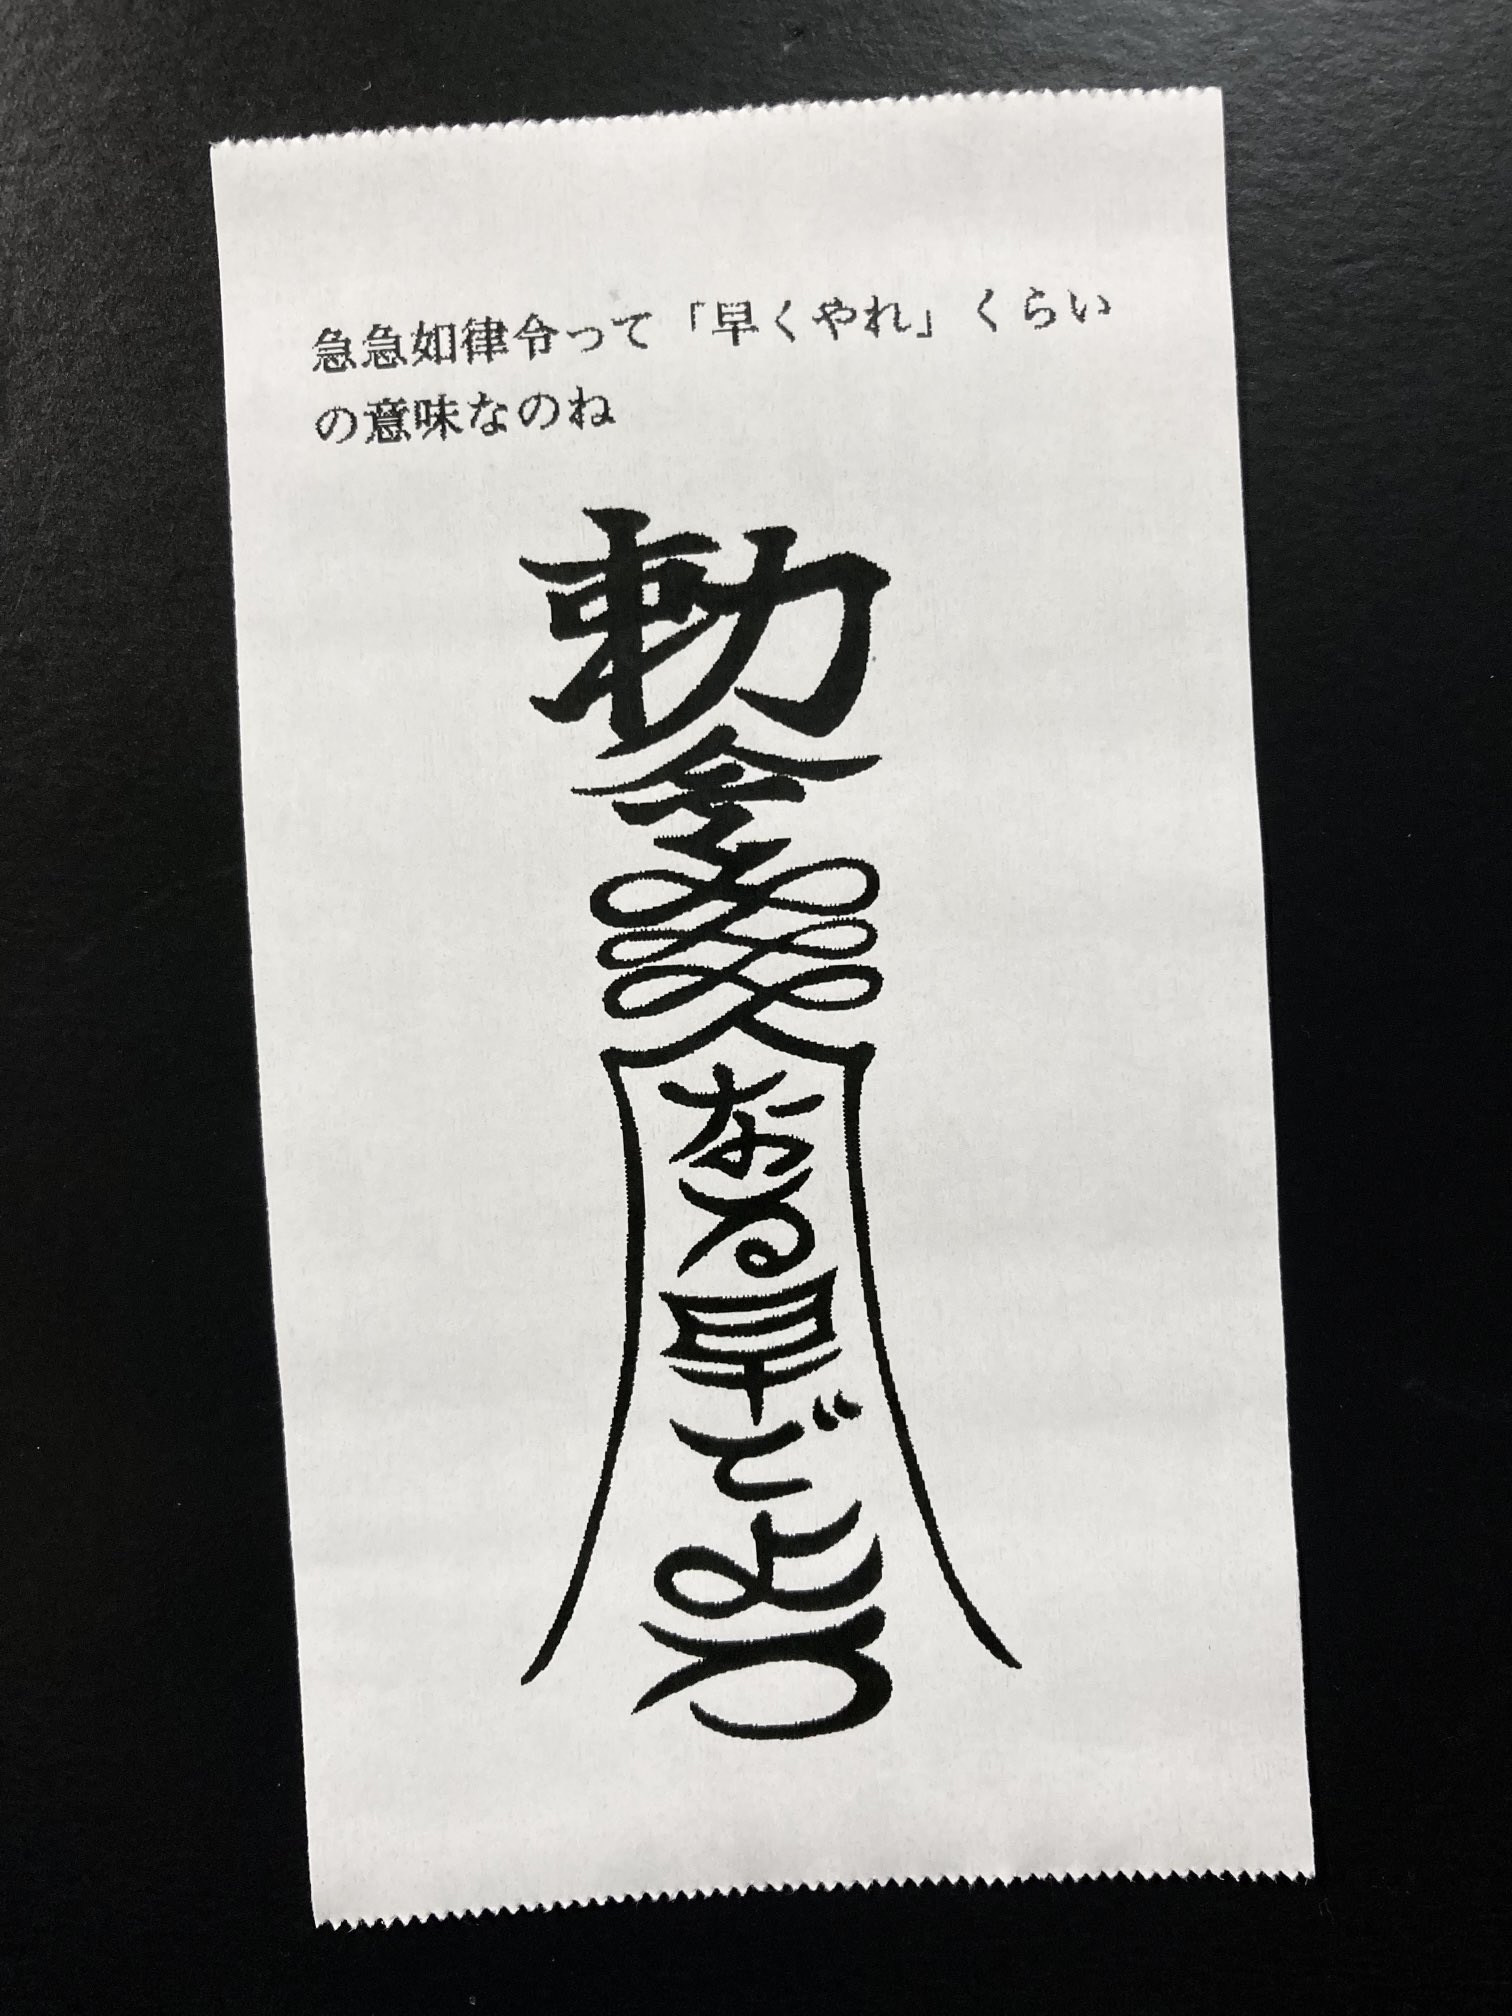 急急如律令って「早くやれ」くらい
の意味なのね
勅令
なる早でよろ